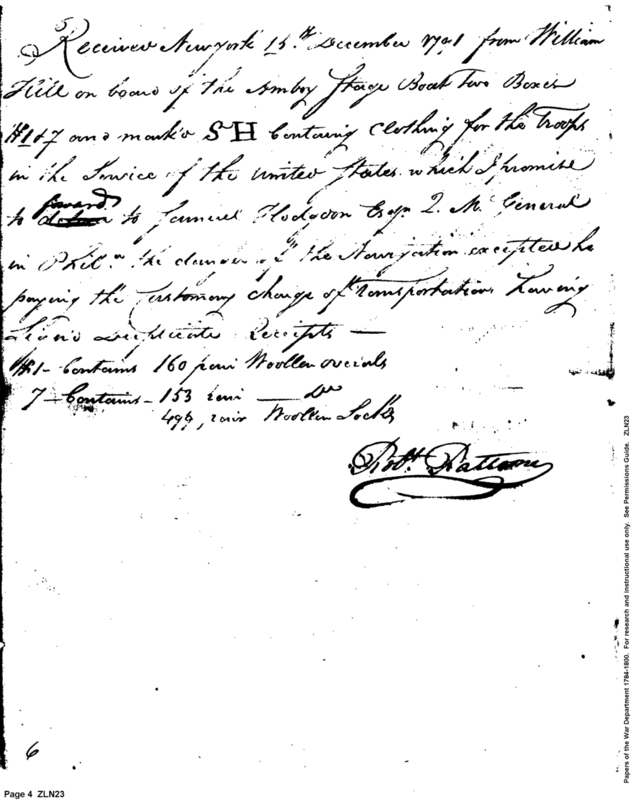 5
Received New York 15.th December 1791 from William
Hill on board of the Amboy Stage Boat Two Boxes
#1 & 7 and mark'd SH Containg Clothing for the Troops
in the Service of the United States which I promise
forward
to to Samuel Hodgdon Esqr. Q. Mr. General
in Phila. the danger of the Navigation excepted he
paying the Customary charge of Transportation Having
Signd Duplicate Receipts —
#1 - Contains 160 pair Woollen overals
7 - Contains - 153 pair — Do
498, pair Woollen Socks
Robt. Pattson
6
Page 4 ZLN23
Papers of the War Department 1784-1800. For research and instructional use only. See Permissions Guide. ZLN23